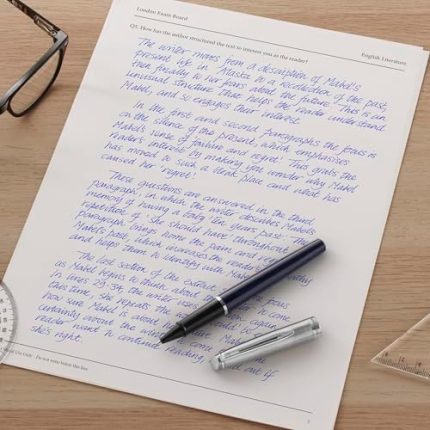 London Exam Board
English Literature
Q5. How has the author structured the text to interest you as the reader?
The writer moves from a description of Mabel's
present life in Alaska to a recollection of the past,
then finally to her fears about the future. This is an
unusual structure that helps the reader understand
Mabel, and so engages their interest.
In the first and second paragraphs the focus is
on the silence of the present, which emphasises
Mabel's sense of failure and regret. This grabs the
reader's interest by making you wonder why Mabel
has moved to such a bleak place and what has
caused her 'regret'.
These questions are answered in the third
paragraph, in which the writer describes Mabel's
memory of having a baby ten years past. The
repetition of 'she should have' throughout the
paragraph brings home the pain and regret
Mabel's past, which increases the reader's
and helps them to identify with Mabel
The last section of the extract focus
as Mabel begins to think about
In lines 29-34, the writer uses to come
this time, she repeats the again
how sure Mabel is about
certainty about the to come
reader want to continue reading, find out if
she's right.